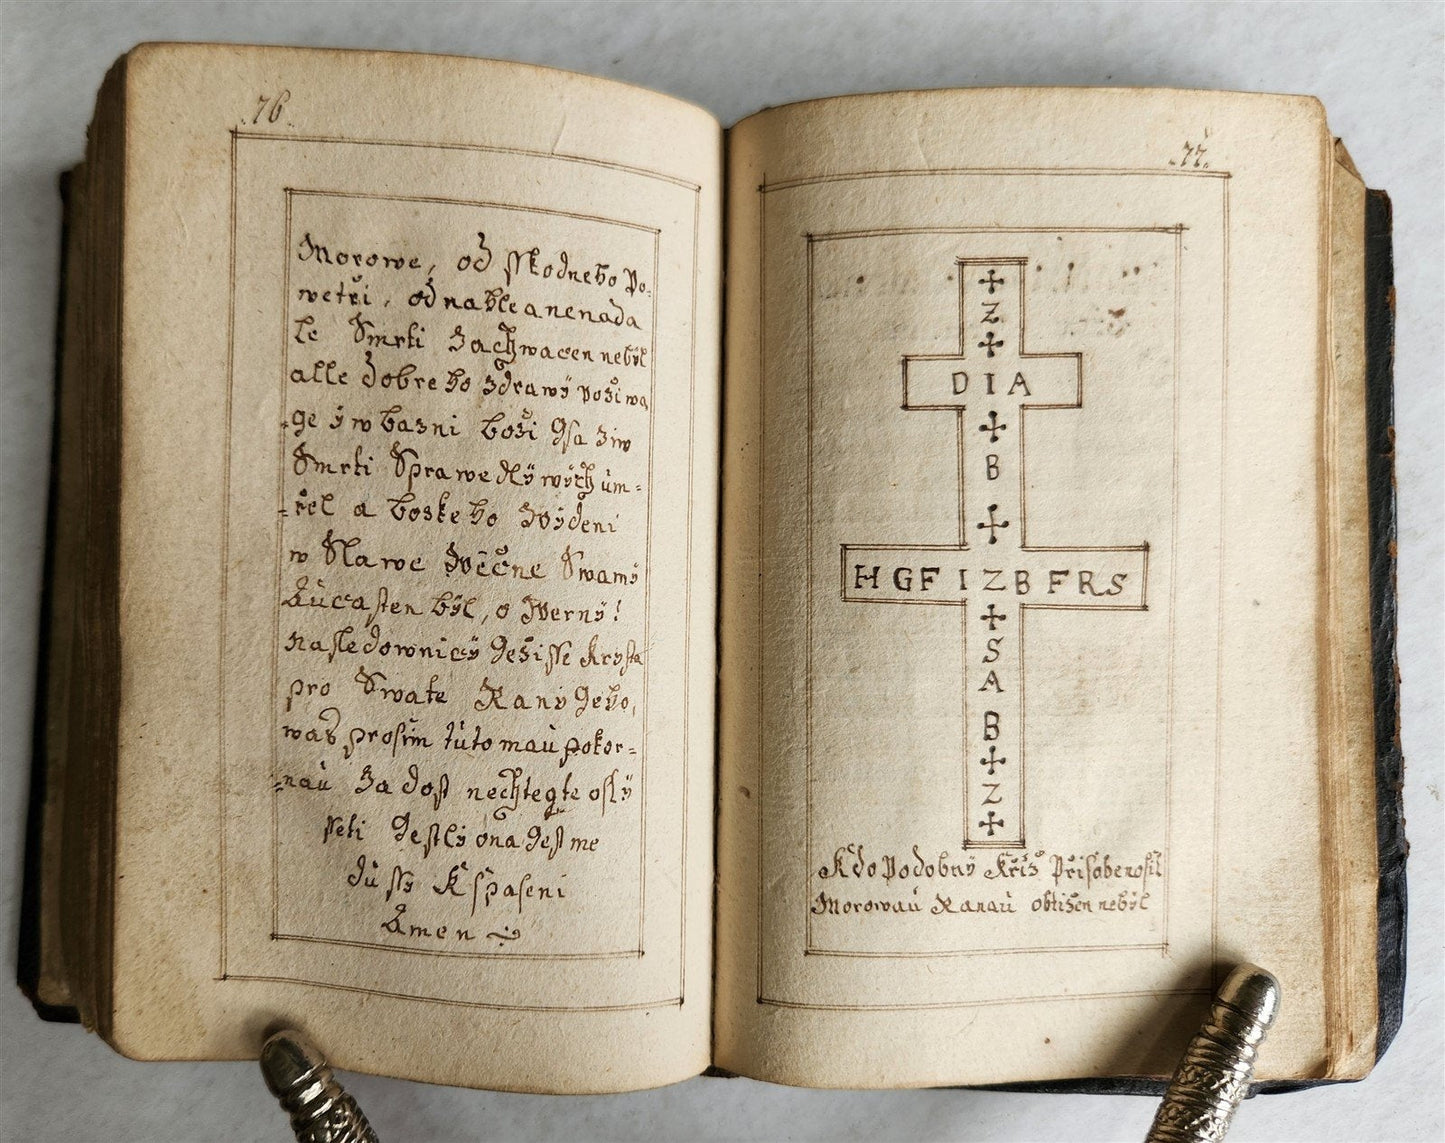 .76.
Morowe, od sskodneho Po-
wetři, od nahle a nenada
le Smrti Zachwacen nebÿl
alle dobreho zdrawÿ požiwa
-ge ÿ w bazni boži gsa žiw
Smrti Sprawedlÿwÿch ùm-
-řel a boskeho Wideni
w Slawe Wěčne Swamÿ
Aùcasten bÿl, o Wernÿ!
nasledownicÿ Gežisse Krysta
pro Swate Ranÿ Geho,
was prosÿm tùto maù pokor-
-naù Zadost nechtegte oslÿ
sseti Gestlÿ ona gest me
dùssÿ K spaseni
Amen
.77.
✢
Z
✢
D I A
✢
B
✢
H G F I Z B F R S
✢
S
A
B
✢
Z
✢
Kdo Podobnÿ Křiž Při sobe nosÿl
Morowaù Ranaù obtižen nebÿl